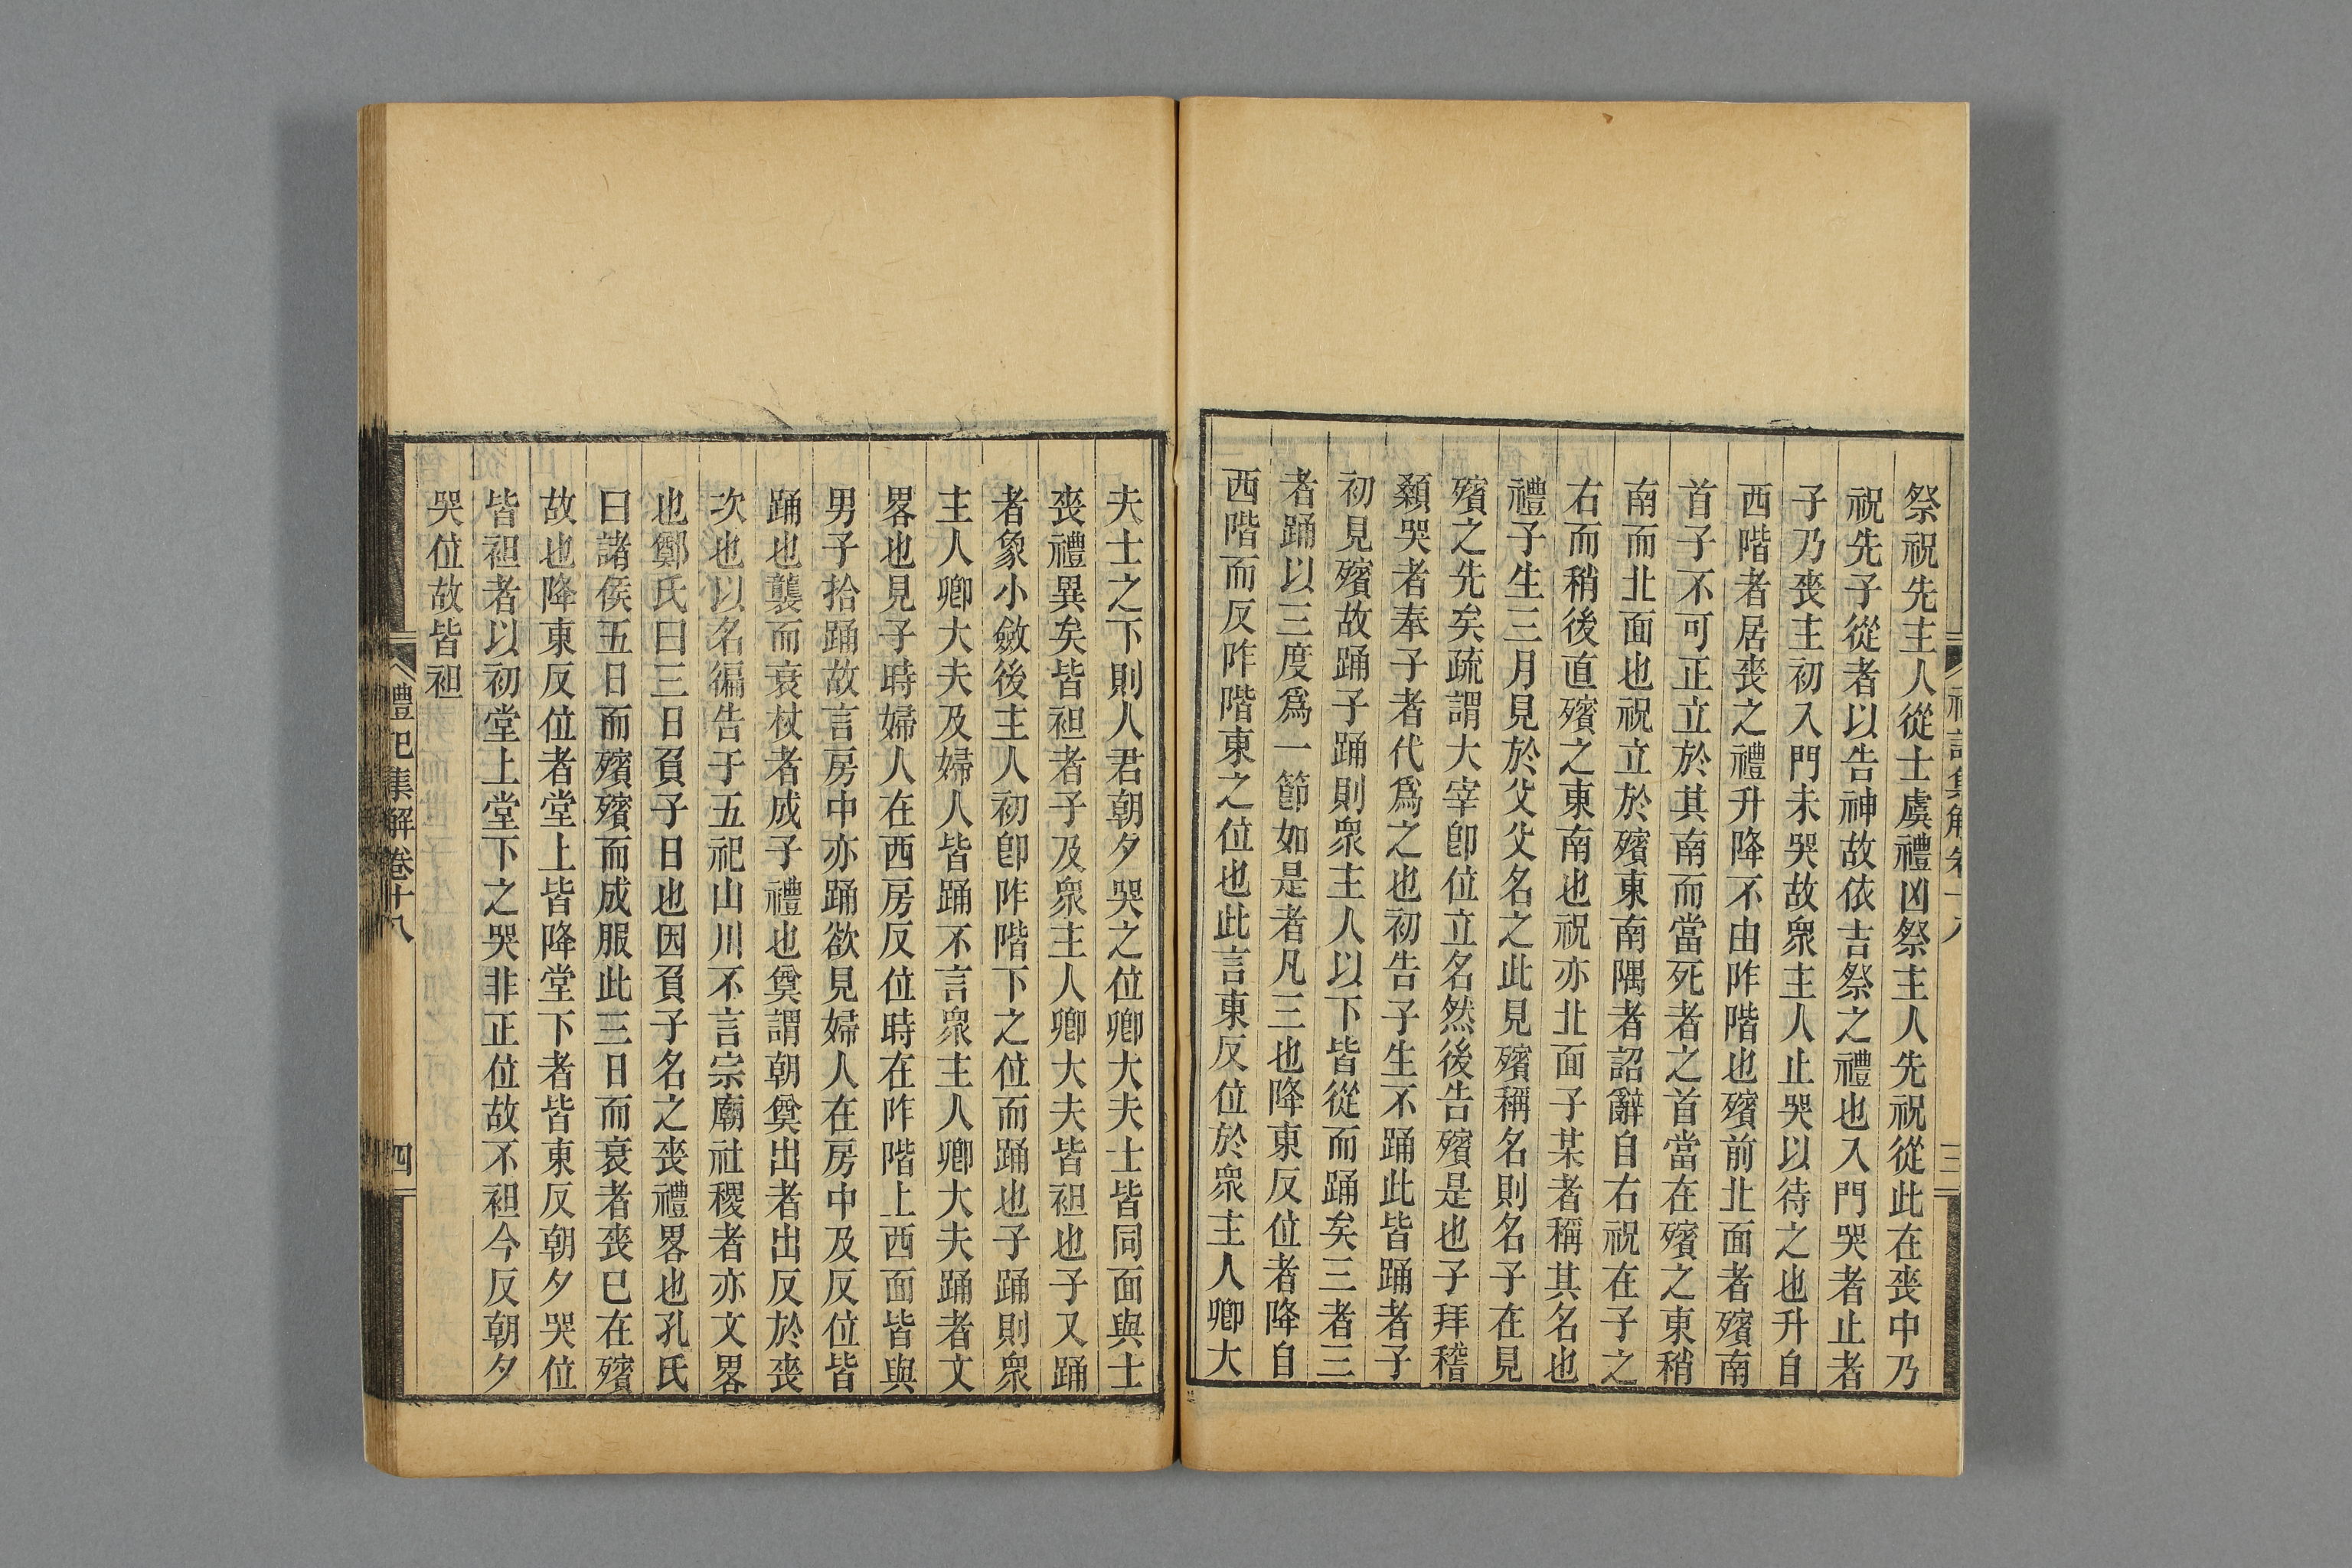 禮記集解卷十八
三
祭祝先主人從士虞禮凶祭主人先祝從此在喪中乃
祝先子從者以告神故依吉祭之禮也入門哭者止者
子乃喪主初入門未哭故衆主人止哭以待之也升自
西階者居喪之禮升降不由阼階也殯前北面者殯南
首子不可正立於其南而當死者之首當在殯之東稍
南而北面也祝立於殯東南隅者詔辭自右祝在子之
右而稍後直殯之東南也祝亦北面子某者稱其名也
禮子生三月見於父父名之此見殯稱名則名子在見
殯之先矣疏謂大宰卽位立名然後告殯是也子拜稽
顙哭者奉子者代爲之也初告子生不踊此皆踊者子
初見殯故踊子踊則衆主人以下皆從而踊矣三者三
者踊以三度爲一節如是者凡三也降東反位者降自
西階而反阼階東之位也此言東反位於衆主人卿大
夫士之下則人君朝夕哭之位卿大夫士皆同面與士
喪禮異矣皆袒者子及衆主人卿大夫皆袒也子又踊
者象小斂後主人初卽阼階下之位而踊也子踊則衆
主人卿大夫及婦人皆踊不言衆主人卿大夫踊者文
畧也見子時婦人在西房反位時在阼階上西面皆與
男子拾踊故言房中亦踊欲見婦人在房中及反位皆
踊也襲而衰杖者成子禮也奠謂朝奠出者出反於喪
次也以名徧告于五祀山川不言宗廟社稷者亦文畧
也鄭氏曰三日負子日也因負子名之喪禮畧也孔氏
曰諸侯五日而殯殯而成服此三日而衰者喪已在殯
故也降東反位者堂上皆降堂下者皆東反朝夕哭位
皆袒者以初堂上堂下之哭非正位故不袒今反朝夕
哭位故皆袒
禮記集解卷十八
四